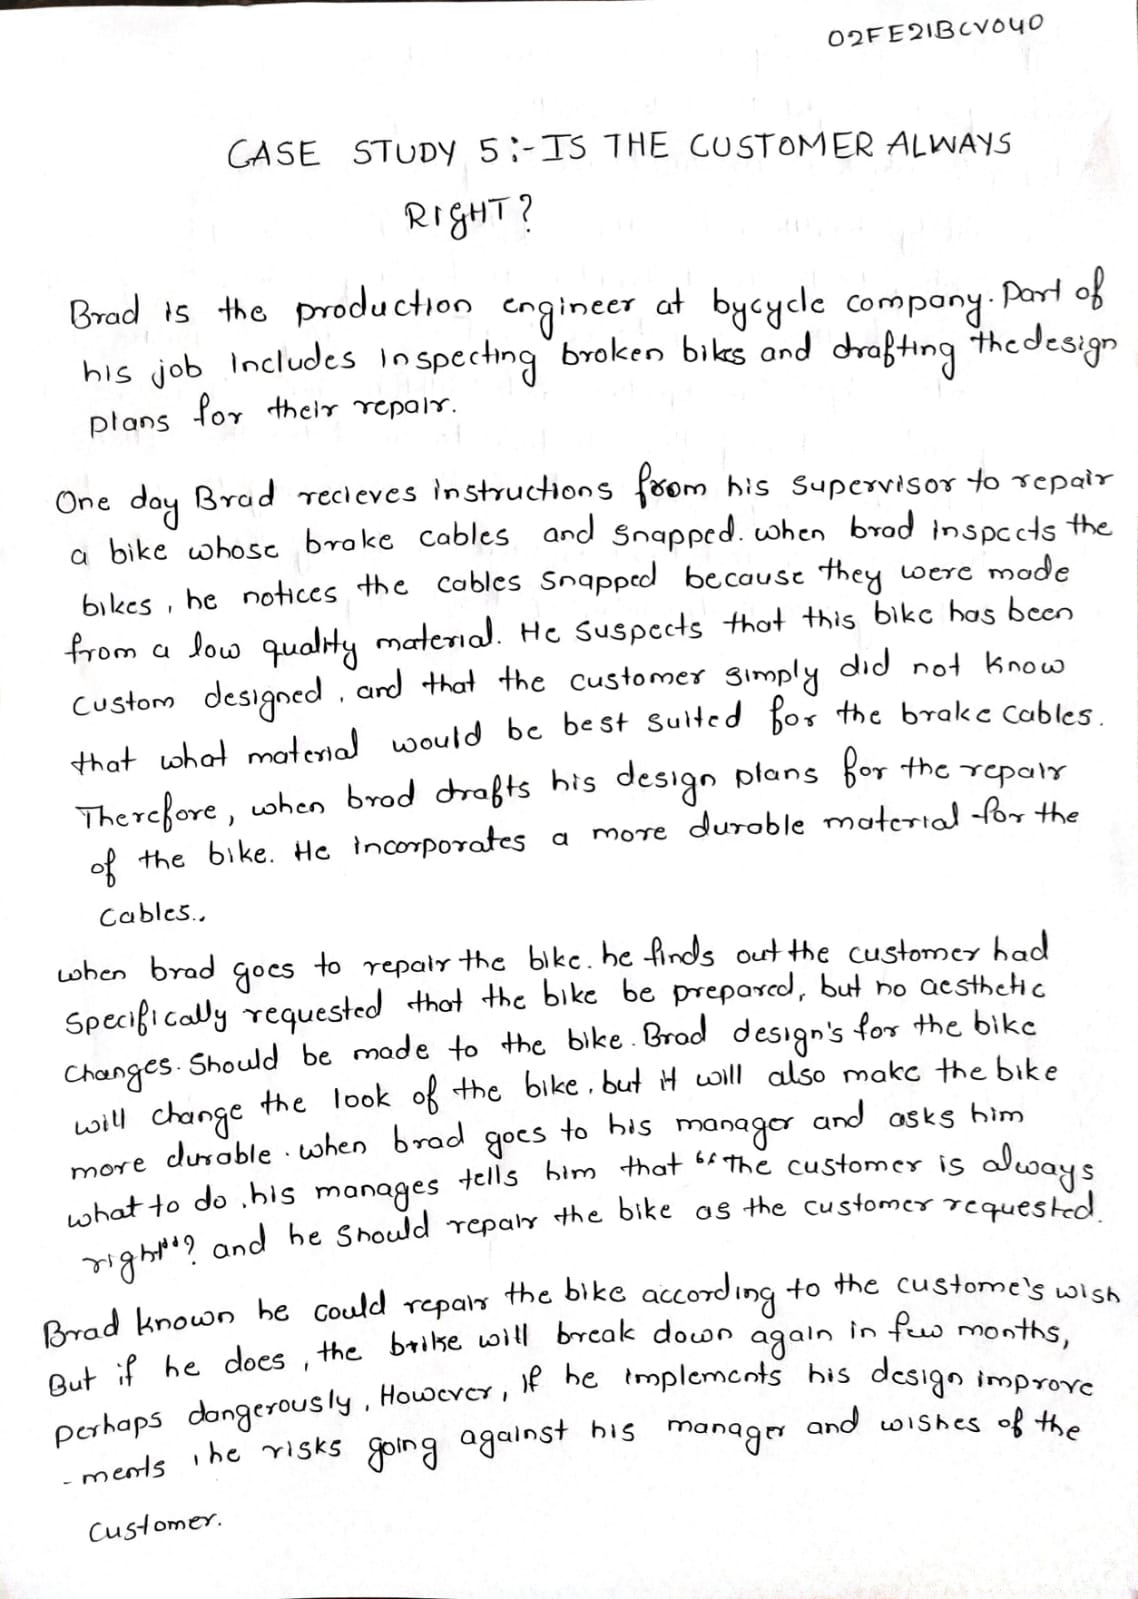 02FE21BCV040
CASE STUDY 5:- IS THE CUSTOMER ALWAYS
RIGHT?
Brad is the production engineer at bycycle company. Part of
his job Includes Inspecting broken bikes and drafting the design
plans for their repair.
One day Brad recieves instructions from his supervisor to repair
a bike whose brake cables and snapped. when brad inspects the
bikes, he notices the cables snapped because they were made
from a low quality material. He suspects that this bike has been
custom designed, and that the customer simply did not know
that what material would be best suited for the brake cables.
Therefore, when brad drafts his design plans for the repair
of the bike. He incorporates a more durable material for the
cables..
when brad goes to repair the bike. he finds out the customer had
specifically requested that the bike be prepared, but no aesthetic
changes. Should be made to the bike. Brad design's for the bike
will change the look of the bike, but it will also make the bike
more durable. when brad goes to his manager and asks him
what to do, his manages tells him that "The customer is always
right"? and he should repair the bike as the customer requested.
Brad known he could repair the bike according to the custome's wish
But if he does, the brike will break down again in few months,
perhaps dangerously, However, if he implements his design improve
-ments, he risks going against his manager and wishes of the
customer.